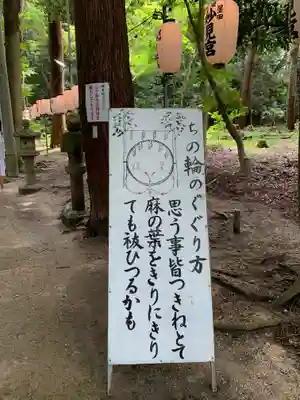 ちの輪のくぐり方
思う事皆つきねとて
麻の葉をきりにきり
ても祓ひつるかも
妙見宮